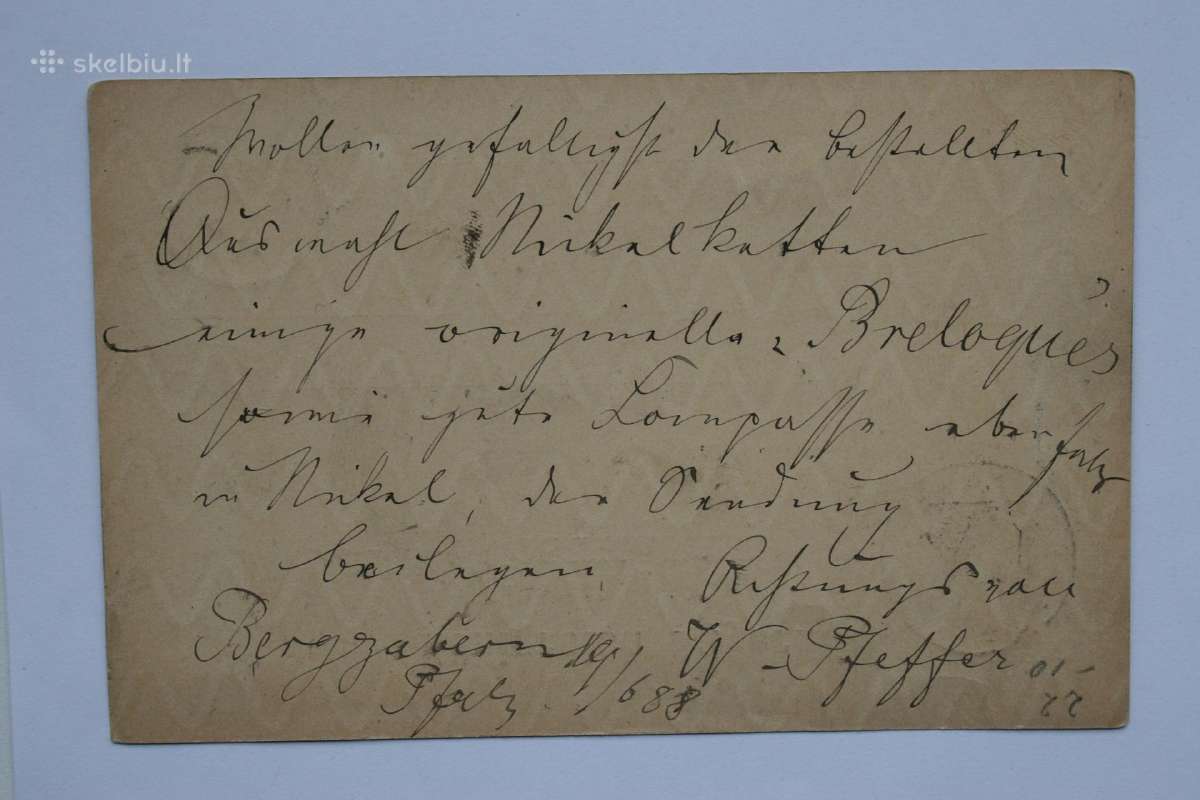 skelbiu.lt
Wollen gefälligst der bestellten
Auswahl Nickelketten
einige originelle Breloques
sowie gute Compasse ebenfalls
in Nickel, der Sendung
beilegen Achtungsvoll
Bergzabern 19/ W Pfeffer
Pfalz /6 88